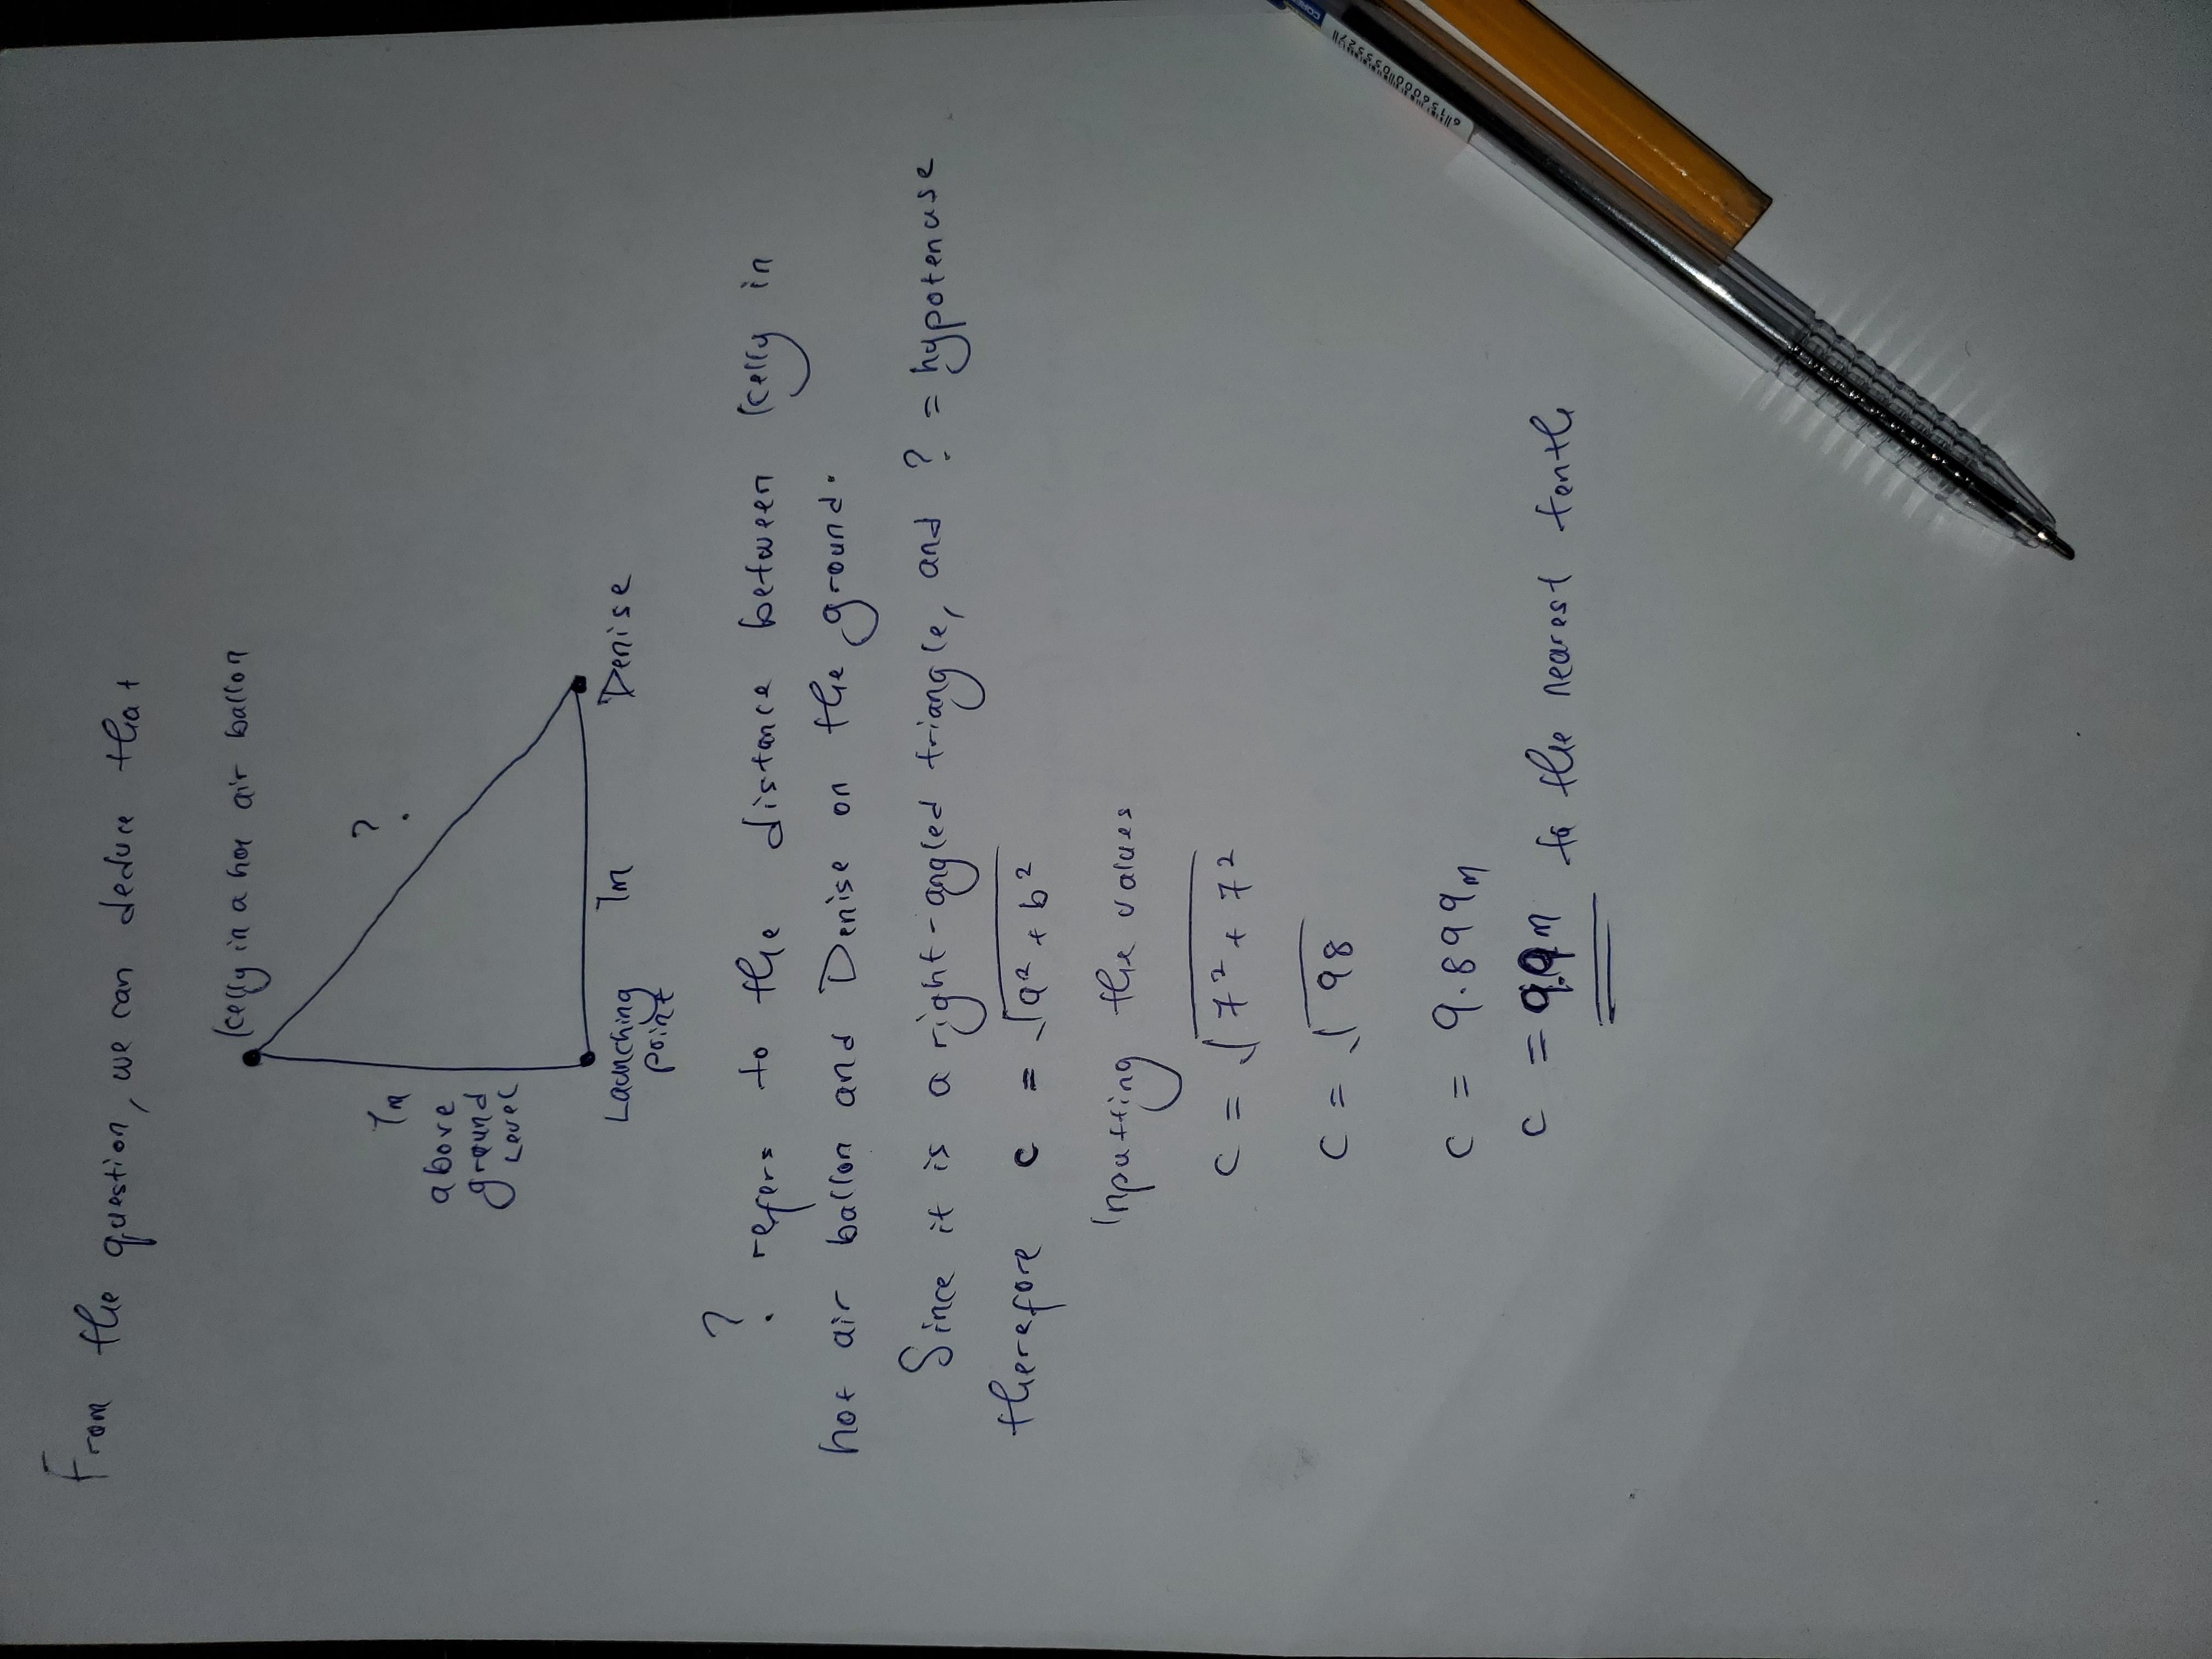 From the question, we can deduce that
Kelly in a hot air ballon
?
7m
above
ground
Level
Launching
point
7m
Denise
? refers to the distance between Kelly in
hot air ballon and Denise on the ground.
Since it is a right-angled triangle, and ? = hypotenuse
therefore c = √a² + b²
Inputting the values
c = √7² + 7²
c = √98
c = 9.899m
c = 9.9m to the nearest tenth